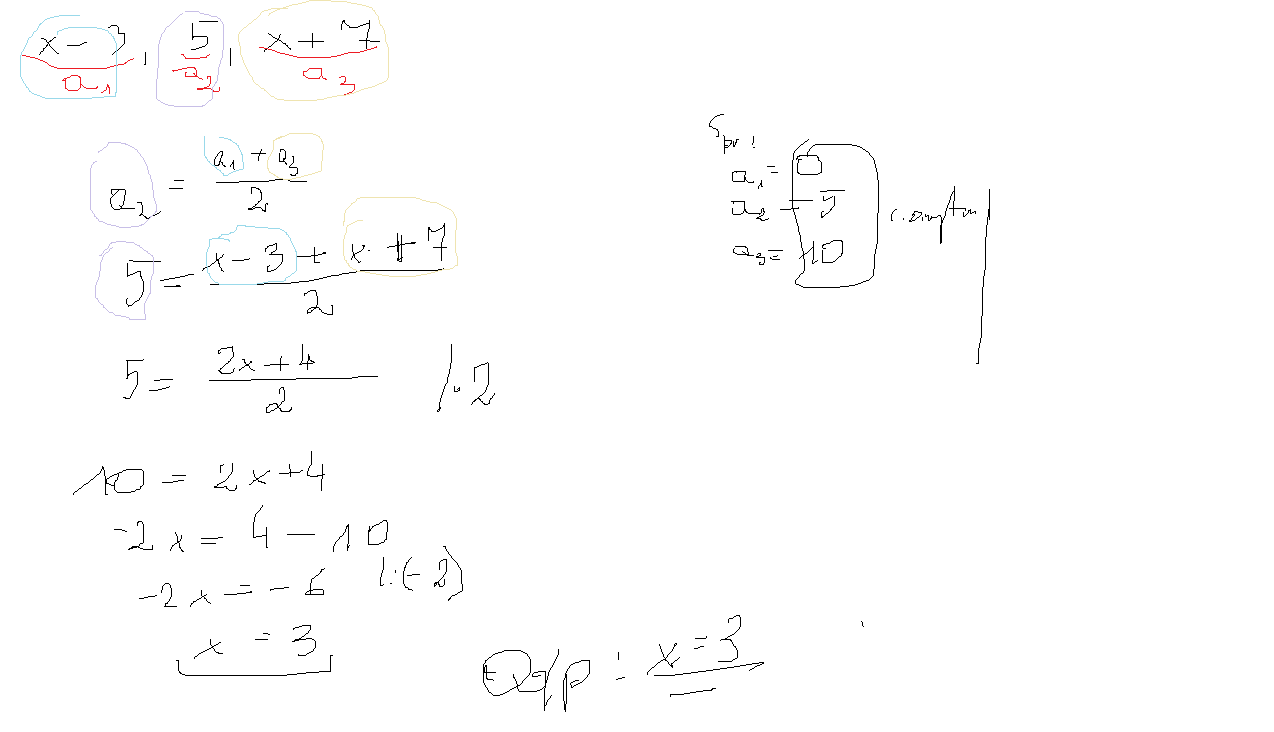 x - 3, 5, x + 7
a₁ a₂ a₃
a₂ = (a₁ + a₃)/2
5 = (x - 3 + x + 7)/2
5 = (2x + 4)/2 /·2
10 = 2x + 4
-2x = 4 - 10
-2x = -6 /:(-2)
x = 3
Odp: x = 3
Spr:
a₁ = 0
a₂ = 5
a₃ = 10